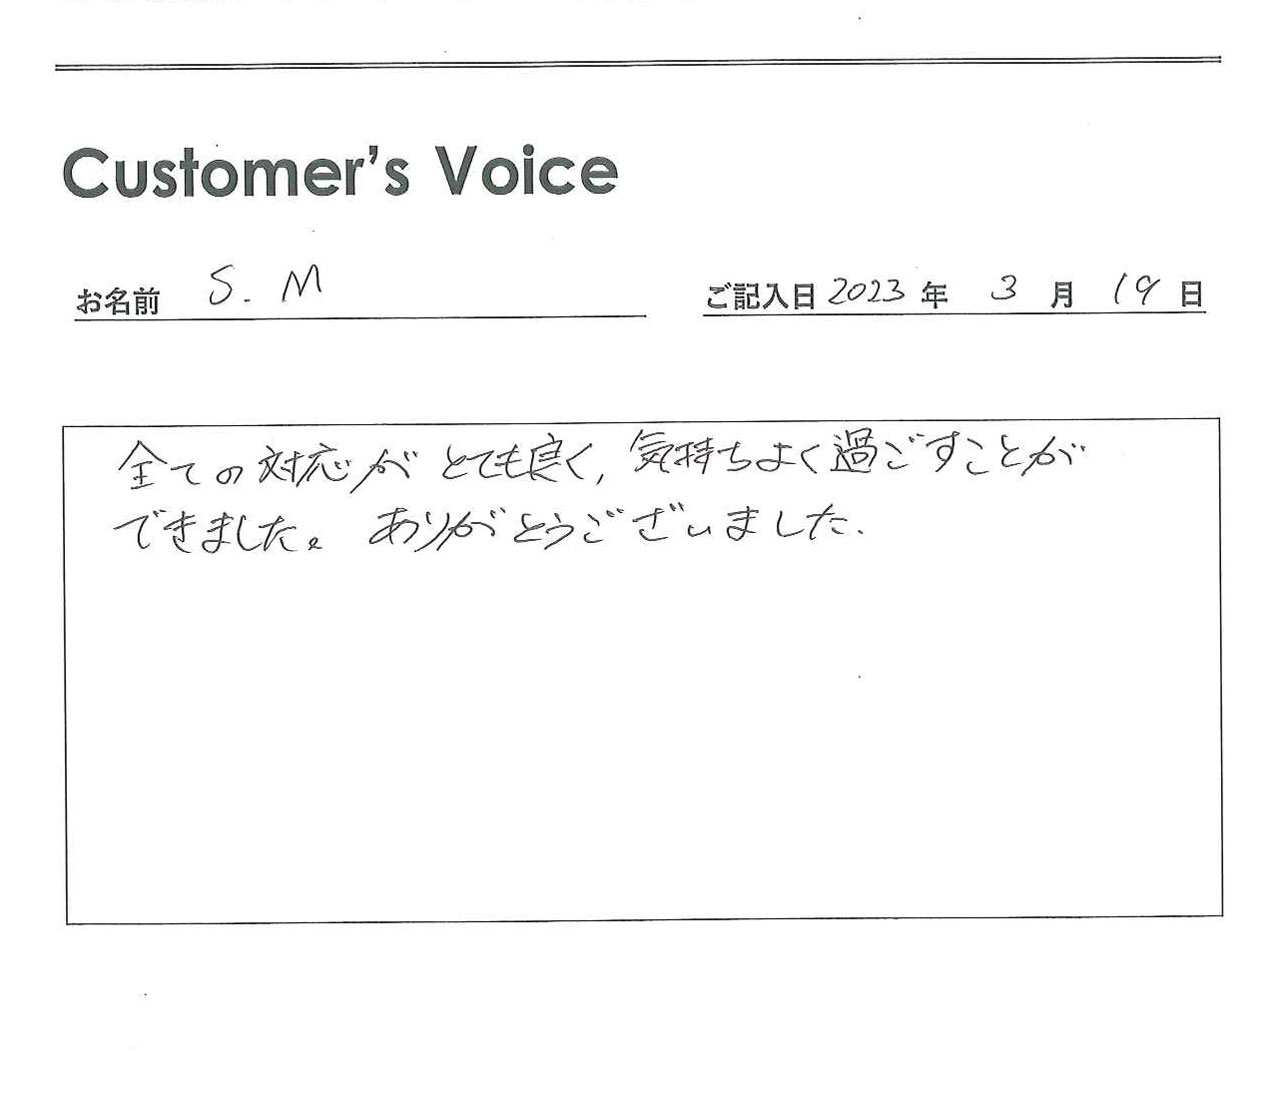 Customer's Voice
お名前 S. M
ご記入日 2023 年 3 月 19 日
全ての対応がとても良く, 気持ちよく過ごすことが
できました。ありがとうございました.